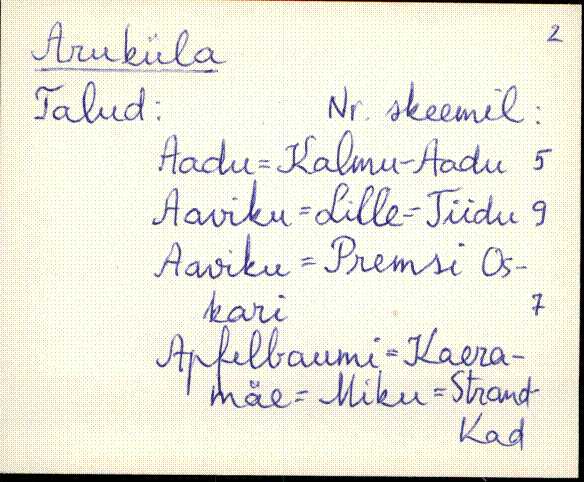 2
Aruküla
Talud: Nr. skeemil:
Aadu = Kalmu-Aadu 5
Aaviku = Lille-Tiidu 9
Aaviku = Premsi Os-
kari 7
Apfelbaumi = Kaera-
mäe = Miku = Strand-
Kad